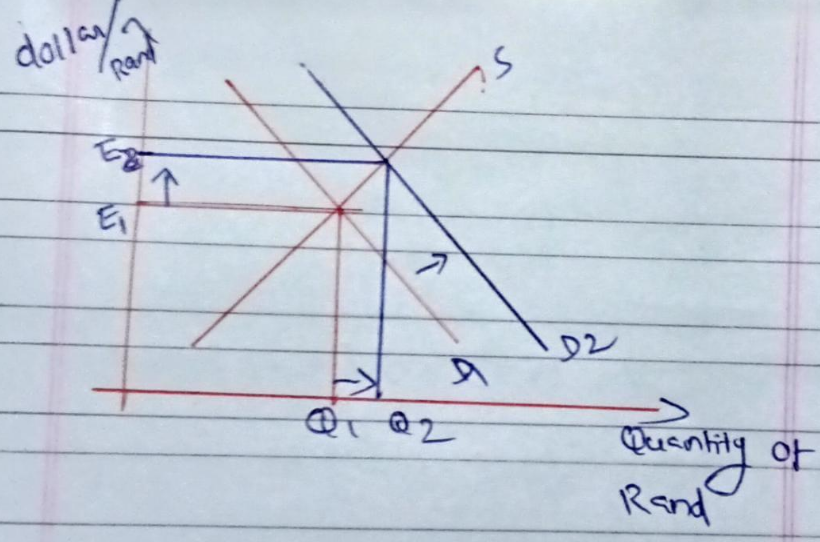 dollar/
Rand
S
E2
E1
D2
D1
Q1 Q2
Quantity of
Rand